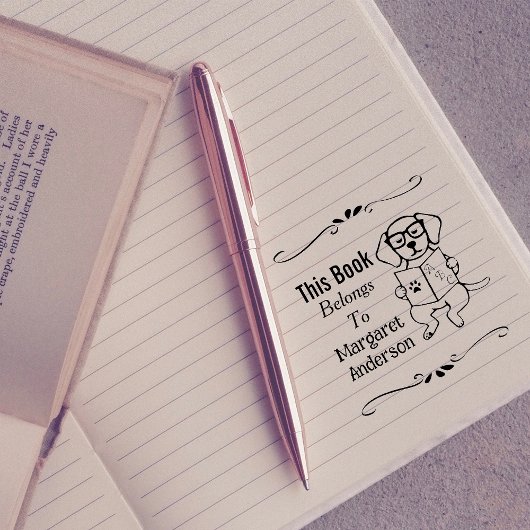 se of
Ladies
t's account of her
ught at the ball I wore a
crape, embroidered and heavily
This Book
Belongs
To
Margaret
Anderson
A B C